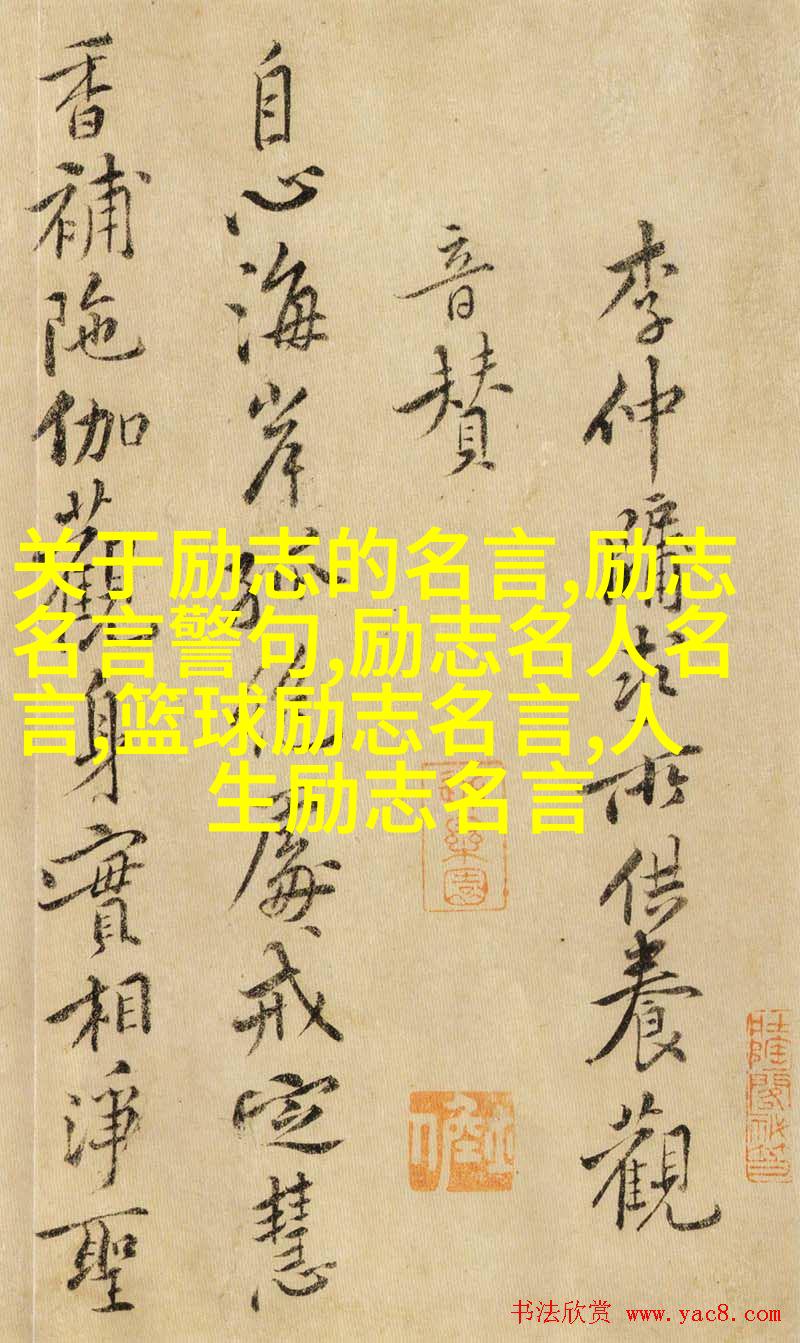 李仲牖求所供養觀
音賛
自心海岸孤絕處戒定慧
香補陁伽觀身實相淨聖
关于励志的名言,励志
名言警句,励志名人名
言,篮球励志名言,人
生励志名言
书法欣赏 www.yac8.com